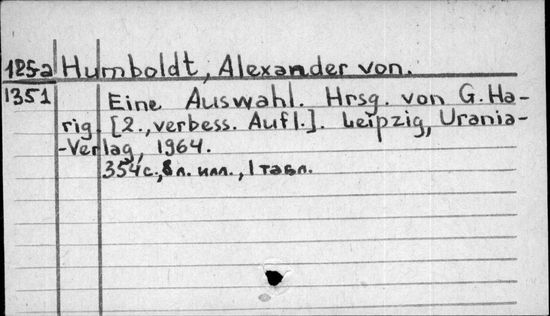 125a Humboldt, Alexander von.
1351 Eine Auswahl. Hrsg. von G. Ha-
rig. [2., verbess. Aufl.]. Leipzig, Urania-
-Verlag, 1964.
354 с., 8 л. илл., 1 табл.